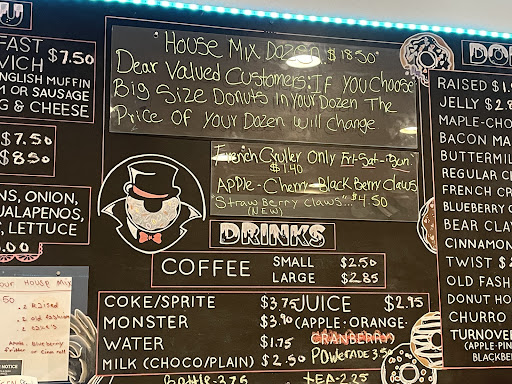 FAST
WICH $7.50
ENGLISH MUFFIN
M OR SAUSAGE
G & CHEESE
$7.50
$8.50
NS, ONION,
JALAPENOS,
LETTUCE
.00
OUR House Mix
.50
2 Raised
2 old fashion
2 cakes
NOTICE
House Mix Dozen $18.50
Dear Valued Customers: If You Choose
Big Size Donuts in Your Dozen The
Price of Your Dozen Will Change
French Cruller Only Fri-Sat-Sun
$1.40
Apple-Cherry-Black Berry Claws
"Straw Berry Claws"... $4.50
(NEW)
DRINKS
COFFEE SMALL $2.50
LARGE $2.85
COKE/SPRITE $3.75
MONSTER $3.90
WATER $1.75
MILK (CHOCO/PLAIN) $2.50
Bottle 3.75
JUICE $2.95
(APPLE·ORANGE·
CRANBERRY)
POWERADE 3.50
TEA-2.25
DO
RAISED $1.
JELLY $2.
MAPLE-CHO
BACON MA
BUTTERMIL
REGULAR C
FRENCH CR
BLUEBERRY
BEAR CLA
CINNAMON
TWIST $2
OLD FASH
DONUT HO
CHURRO
TURNOVE
(APPLE·PIN
BLACKBER